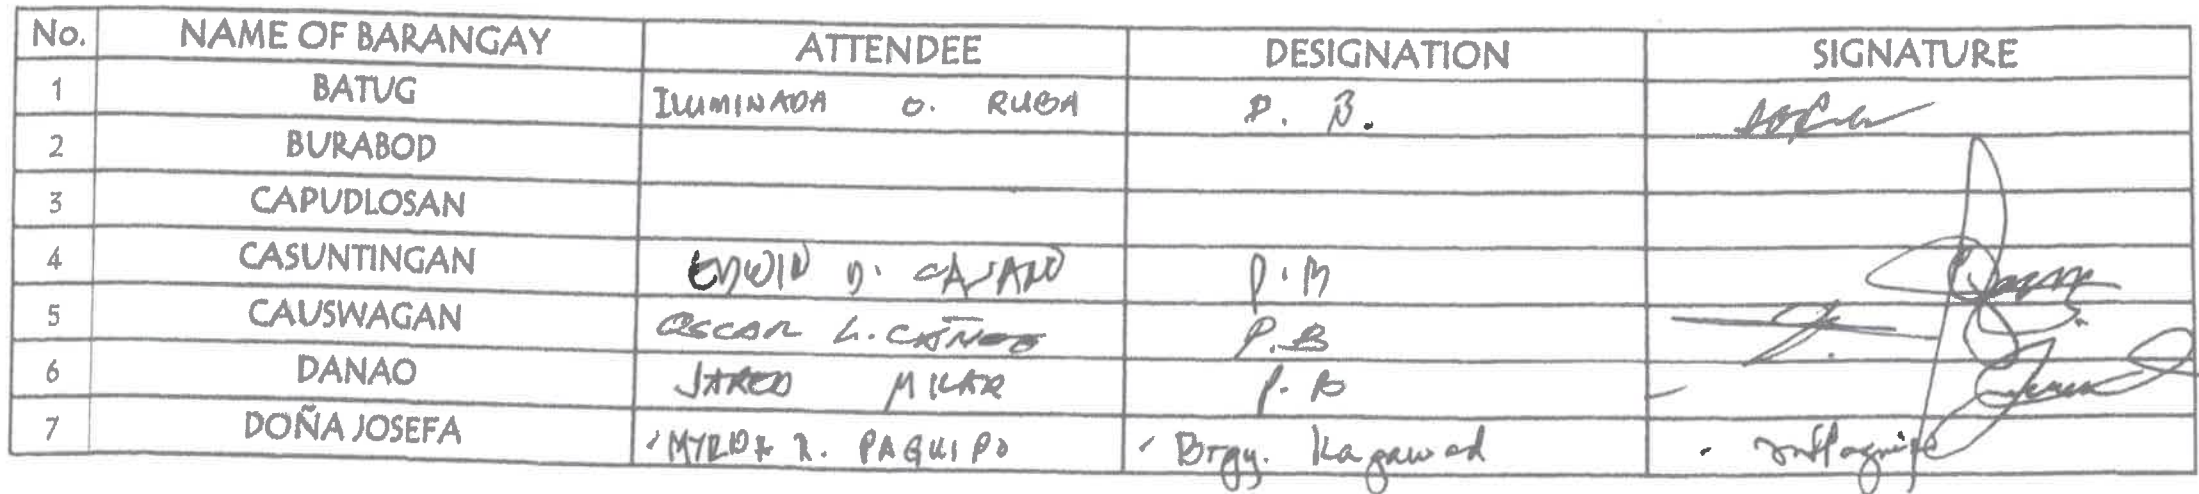 No. NAME OF BARANGAY ATTENDEE DESIGNATION SIGNATURE
1 BATUG ILUMINADA O. RUBA P. B.
2 BURABOD
3 CAPUDLOSAN
4 CASUNTINGAN EDWIN D. P.B
5 CAUSWAGAN OSCAR L. P.B
6 DANAO JARED MILAR P.B
7 DOÑA JOSEFA MYRDA R. PAQUIPO Brgy. Kagawad